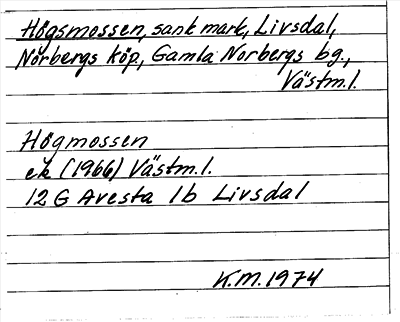 Högsmossen, sank mark, Livsdal,
Norbergs köp., Gamla Norbergs bg.,
Västm.l.
Högmossen
ek (1966) Västm.l.
12 G Avesta 1b Livsdal
K.M. 1974